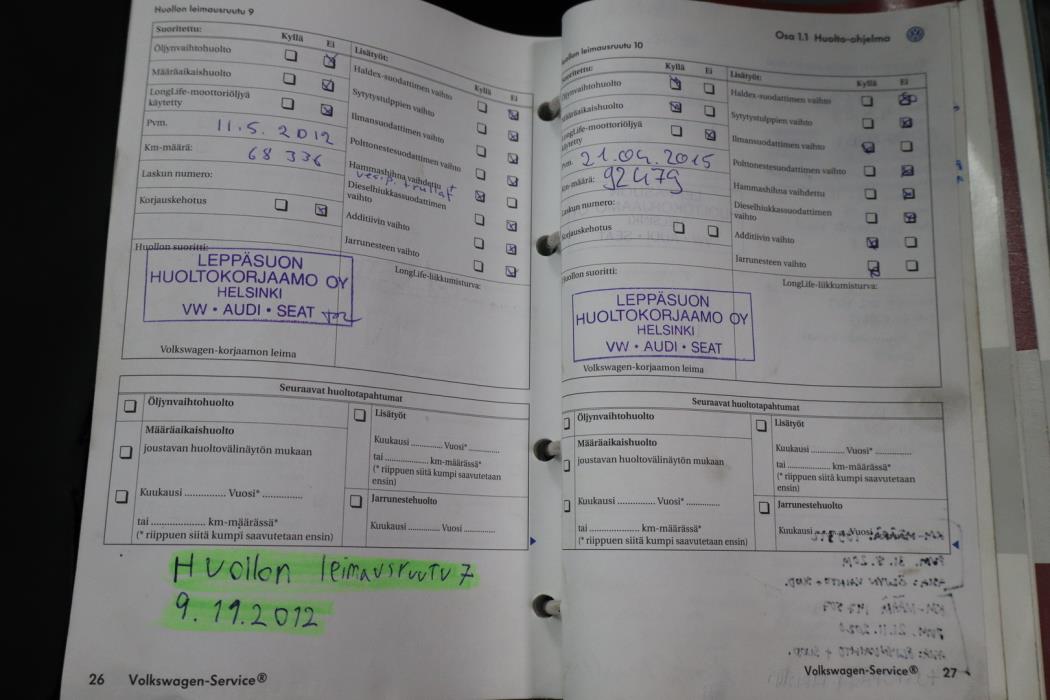 Huollon leimausruutu 9
Suoritettu:
Kyllä Ei
Öljynvaihtohuolto
Määräaikaishuolto
LongLife-moottoriöljyä
käytetty
Pvm. 11.5.2012
Km-määrä: 68 336
Laskun numero:
Korjauskehotus
Huollon suoritti:
LEPPÄSUON
HUOLTOKORJAAMO OY
HELSINKI
VW • AUDI • SEAT
Volkswagen-korjaamon leima
Lisätyöt:
Kyllä Ei
Haldex-suodattimen vaihto
Sytytystulppien vaihto
Ilmansuodattimen vaihto
Polttonestesuodattimen vaihto
Hammashihna vaihdettu +
vesip. + rullat
Dieselhiukkassuodattimen
vaihto
Additiivin vaihto
Jarrunesteen vaihto
LongLife-liikkumisturva:
Seuraavat huoltotapahtumat
Öljynvaihtohuolto
Määräaikaishuolto
joustavan huoltovälinäytön mukaan
Kuukausi .............. Vuosi* ..............
tai .................... km-määrässä*
(* riippuen siitä kumpi saavutetaan ensin)
Lisätyöt
Kuukausi ........... Vuosi* ..........
tai ............... km-määrässä*
(* riippuen siitä kumpi saavutetaan
ensin)
Jarrunestehuolto
Kuukausi .............. Vuosi ...........
Huollon leimausruutu 7
9.11.2012
26 Volkswagen-Service®
Osa 1.1 Huolto-ohjelma
Huollon leimausruutu 10
Suoritettu:
Kyllä Ei
Öljynvaihtohuolto
Määräaikaishuolto
LongLife-moottoriöljyä
käytetty
Pvm. 21.04.2015
Km-määrä: 92479
Laskun numero:
Korjauskehotus
Huollon suoritti:
LEPPÄSUON
HUOLTOKORJAAMO OY
HELSINKI
VW • AUDI • SEAT
Volkswagen-korjaamon leima
Lisätyöt:
Kyllä Ei
Haldex-suodattimen vaihto
Sytytystulppien vaihto
Ilmansuodattimen vaihto
Polttonestesuodattimen vaihto
Hammashihna vaihdettu
Dieselhiukkassuodattimen
vaihto
Additiivin vaihto
Jarrunesteen vaihto
LongLife-liikkumisturva:
Seuraavat huoltotapahtumat
Öljynvaihtohuolto
Määräaikaishuolto
joustavan huoltovälinäytön mukaan
Kuukausi .............. Vuosi* ..............
tai .................... km-määrässä*
(* riippuen siitä kumpi saavutetaan ensin)
Lisätyöt
Kuukausi ........... Vuosi* ..........
tai ............... km-määrässä*
(* riippuen siitä kumpi saavutetaan
ensin)
Jarrunestehuolto
Kuukausi .............. Vuosi
Volkswagen-Service® 27